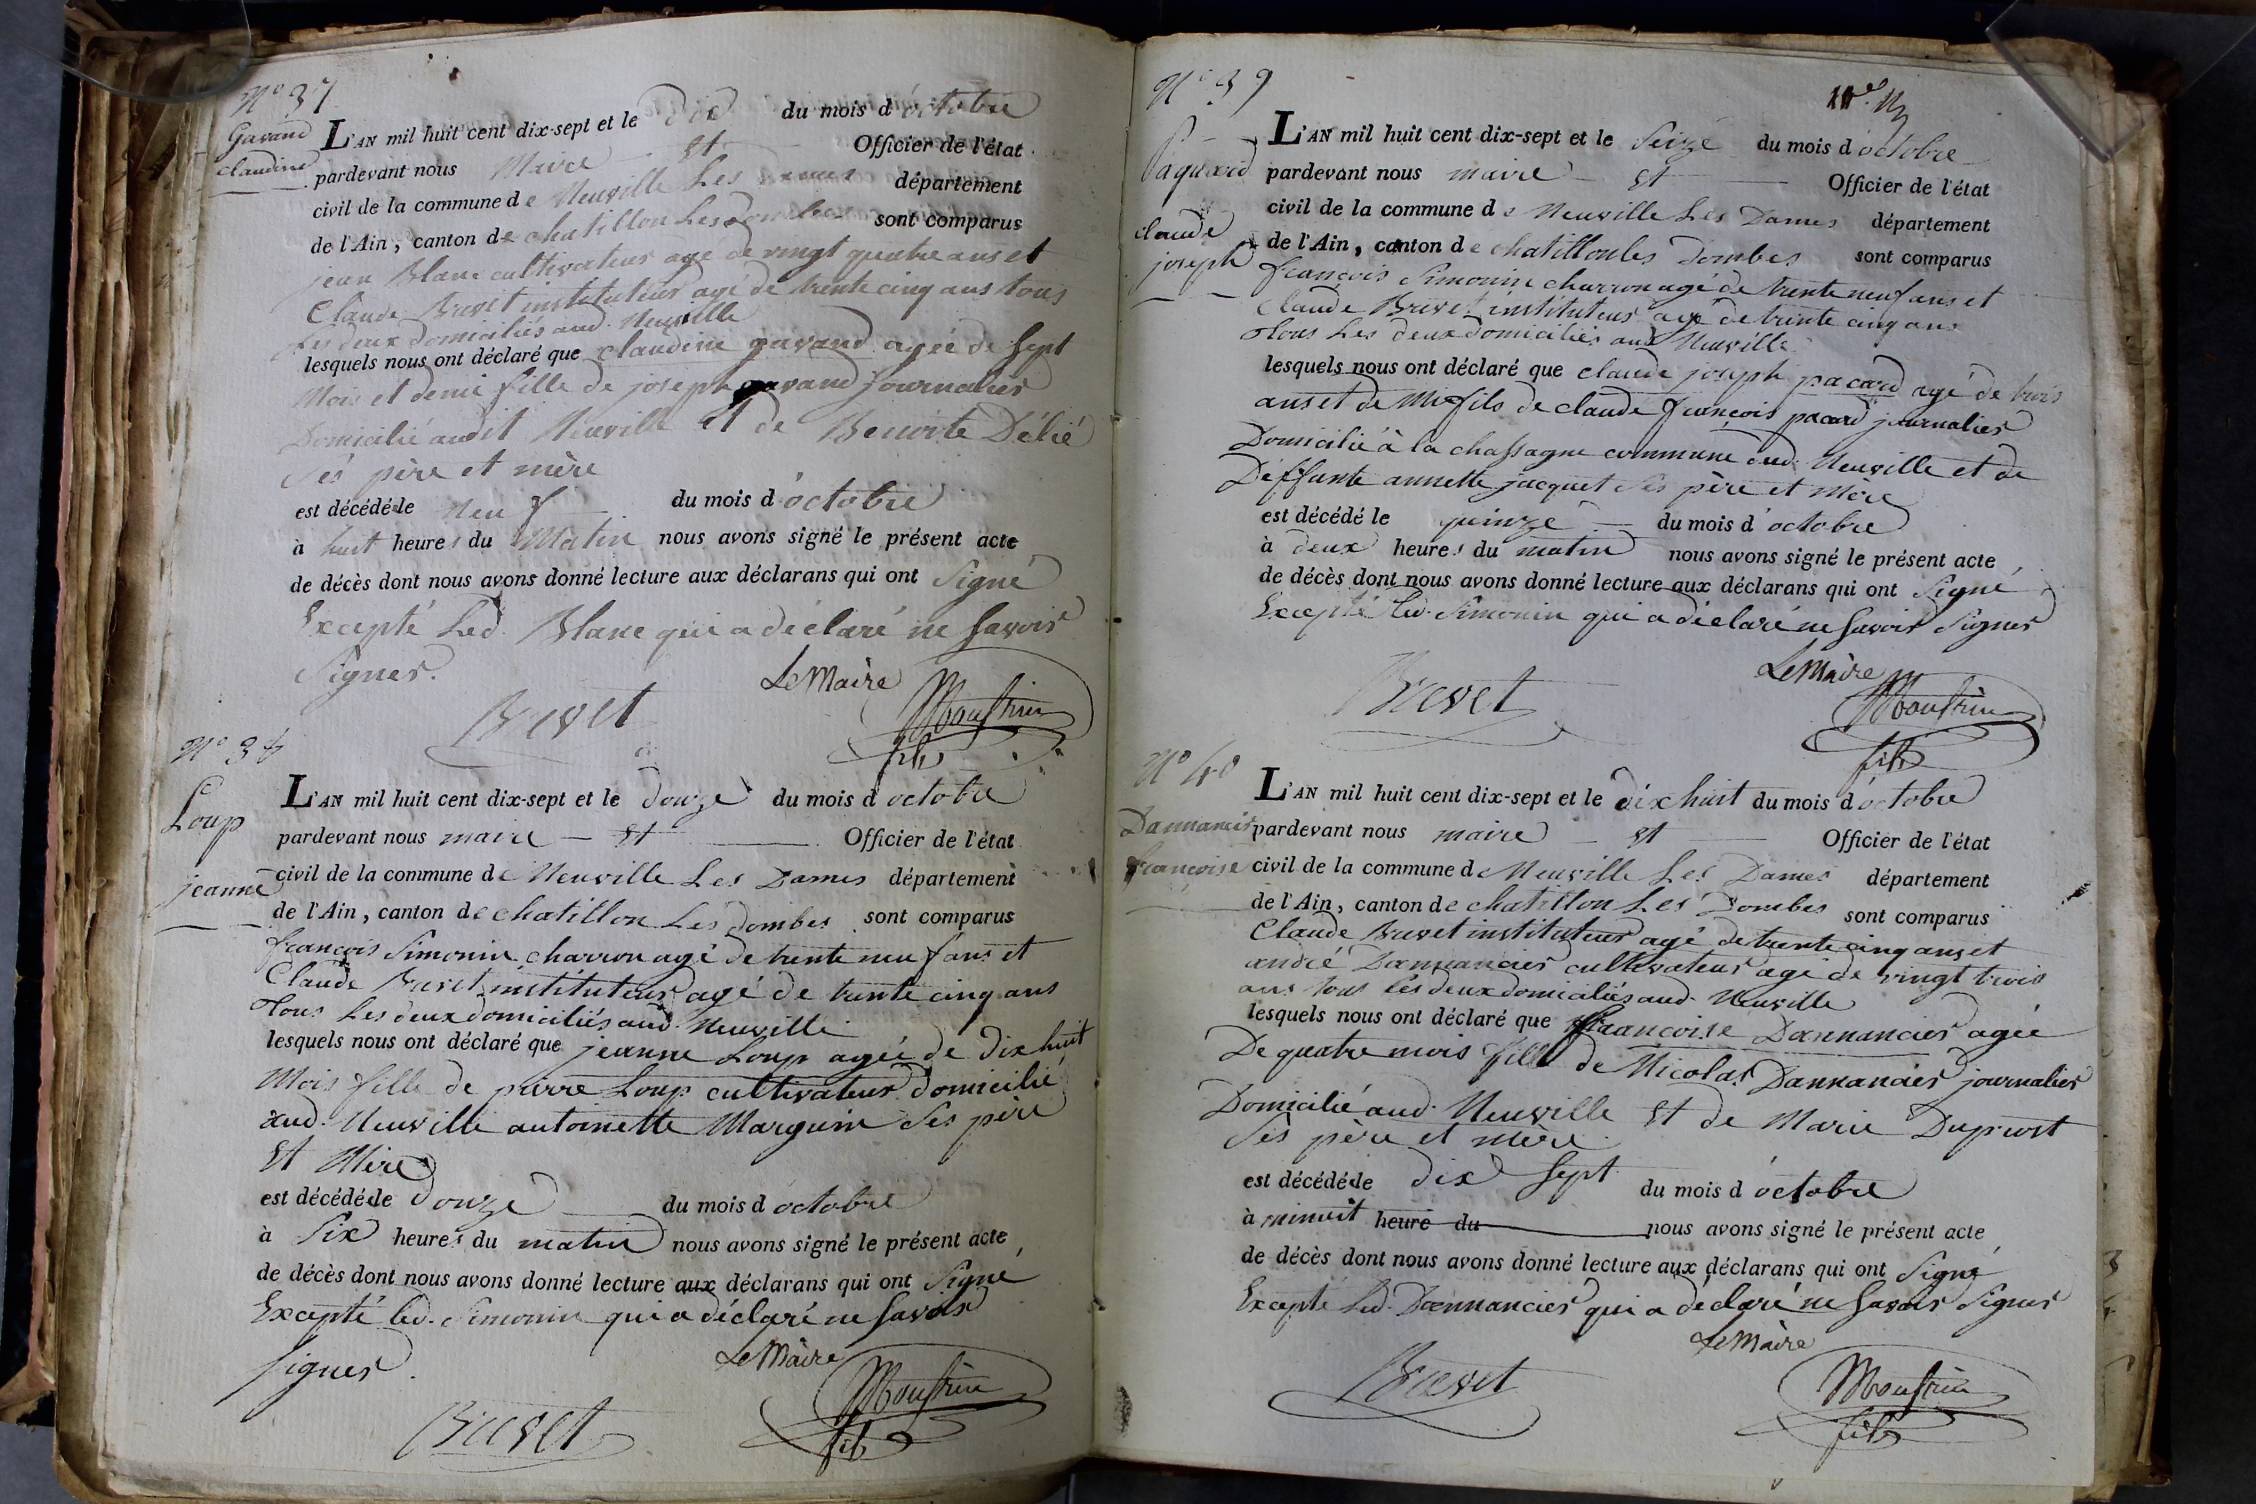 N° 37
Gavand
claudine
L'AN mil huit cent dix-sept et le dix du mois d'octobre
pardevant nous Maire et Officier de l'état
civil de la commune de Neuville Les Dames département
de l'Ain, canton de chatillon Les Dombes sont comparus
jean Blanc cultivateur agé de vingt quatre ans et
Claude Brevet instituteur agé de trente cinq ans tous
Les deux domiciliés aud. Neuville
lesquels nous ont déclaré que claudine gavand agée de Sept
Mois et demi fille de joseph gavand journalier
Domicilié audit Neuville et de Benoite Délié
Sés père et mère
est décédée le neuf du mois d'octobre
à huit heures du Matin nous avons signé le présent acte
de décès dont nous avons donné lecture aux déclarans qui ont Signé
Excepté Led. Blanc qui a déclaré ne Savoir
Signer.
Le Maire
Brevet
fils
N° 38
Loup
jeanne
L'AN mil huit cent dix-sept et le douze du mois d'octobre
pardevant nous maire et Officier de l'état
civil de la commune de Neuville Les Dames département
de l'Ain, canton de chatillon Les Dombes sont comparus
françois Simonin charron agé de trente neuf ans et
Claude Brevet instituteur agé de trente cinq ans
Tous Les deux domiciliés aud. Neuville
lesquels nous ont déclaré que jeanne Loup agée de Dix huit
Mois fille de pierre Loup cultivateur domicilié
aud. Neuville antoinette Marguin Ses père
Et Mère
est décédée le douze du mois d'octobre
à Six heures du matin nous avons signé le présent acte
de décès dont nous avons donné lecture aux déclarans qui ont Signé
Excepté led. Simonin qui a déclaré ne Savoir
Signer.
Le Maire
Brevet
fils
N° 39
Paquard
claude
joseph
L'AN mil huit cent dix-sept et le Seize du mois d'octobre
pardevant nous maire et Officier de l'état
civil de la commune de Neuville Les Dames département
de l'Ain, canton de chatillon les Dombes sont comparus
françois Simonin charron agé de trente neuf ans et
Claude Brevet instituteur agé de trente cinq ans
Tous Les deux domiciliés aud Neuville
lesquels nous ont déclaré que claude joseph pacard agé de trois
ans et de Mi fils de claude françois pacard journalier
Domicilié à la chassagne commune dud. Neuville et de
Deffunte annette jacquet Ses père et Mère
est décédé le quinze du mois d'octobre
à deux heures du matin nous avons signé le présent acte
de décès dont nous avons donné lecture aux déclarans qui ont Signé
Excepté led. Simonin qui a déclaré ne Savoir Signer
Le Maire
Brevet
fils
N° 40
Dannancier
françoise
L'AN mil huit cent dix-sept et le dix huit du mois d'octobre
pardevant nous maire et Officier de l'état
civil de la commune de Neuville Les Dames département
de l'Ain, canton de chatillon Les Dombes sont comparus
Claude Brevet instituteur agé de trente cinq ans et
andré Dannancier cultivateur agé de vingt trois
ans tous les deux domiciliés aud. Neuville
lesquels nous ont déclaré que françoise Dannancier agée
De quatre mois fille de Nicolas Dannancier journalier
Domicilié aud. Neuville Et de Marie Duprost
Sès père et mère.
est décédée le dix Sept du mois d'octobre
à minuit heure du nous avons signé le présent acte
de décès dont nous avons donné lecture aux déclarans qui ont Signé
Excepté Led. Dannancier qui a déclaré ne Savoir Signer
Le Maire
Brevet
fils